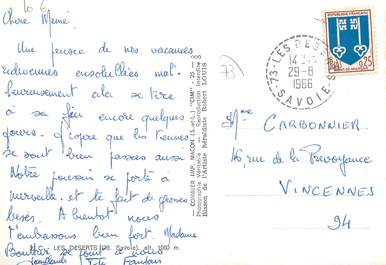 10 €
Chère Mémé,
Une pensée de nos vacances
ensoleillées mal-
heureusement cela se tire
à sa fin encore quelques
jours. J'espère que les tiennes
se sont bien passées aussi
Notre poussin se porte à
merveille et te fait de grosses
bises. A bientôt nous
t'embrassons bien fort. Madame
Bouthier se joint à nous
COMBIER IMP. MACON (S.-et-L.) "CIM"
Reproduction Interdite
Blason de l'Artiste héraldiste Robert LOUIS
LES DESERTS (Savoie), alt. 1000 m.
73
73-LES DESERTS
29-8
1966
SAVOIE
REPUBLIQUE FRANÇAISE
0,25
Mme CARBONNIER
16, rue de la Prevoyance
VINCENNES
94